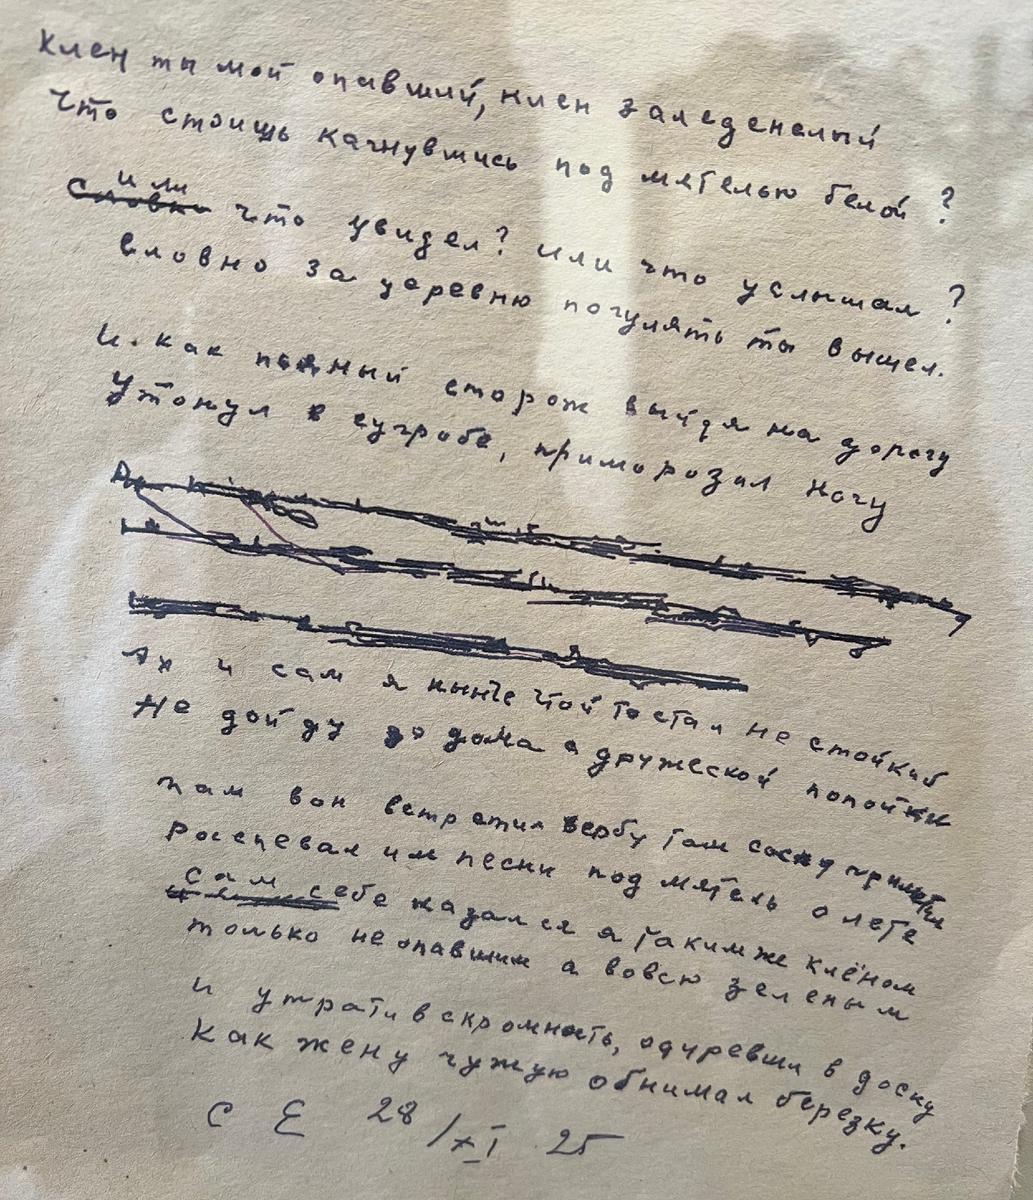 Клен ты мой опавший, клен заледенелый
Что стоишь качнувшись под мятелью белой?
или
Словно что увидел? или что услышал?
Словно за деревню погулять ты вышел.
И как пьяный сторож выйдя на дорогу
Утонул в сугробе, приморозил ногу
Ах и сам я нынче чтой то стал не стойкий
Не дойду до дома с дружеской попойки
там вон встретил вербу там сосну приметил
Распевал им песни под мятель о лете
сам себе казался я таким же клёном
только не опавшим а вовсю зеленым
и утратив скромность, одуревши в доску
Как жену чужую обнимал березку.
С Е 28/XI 25